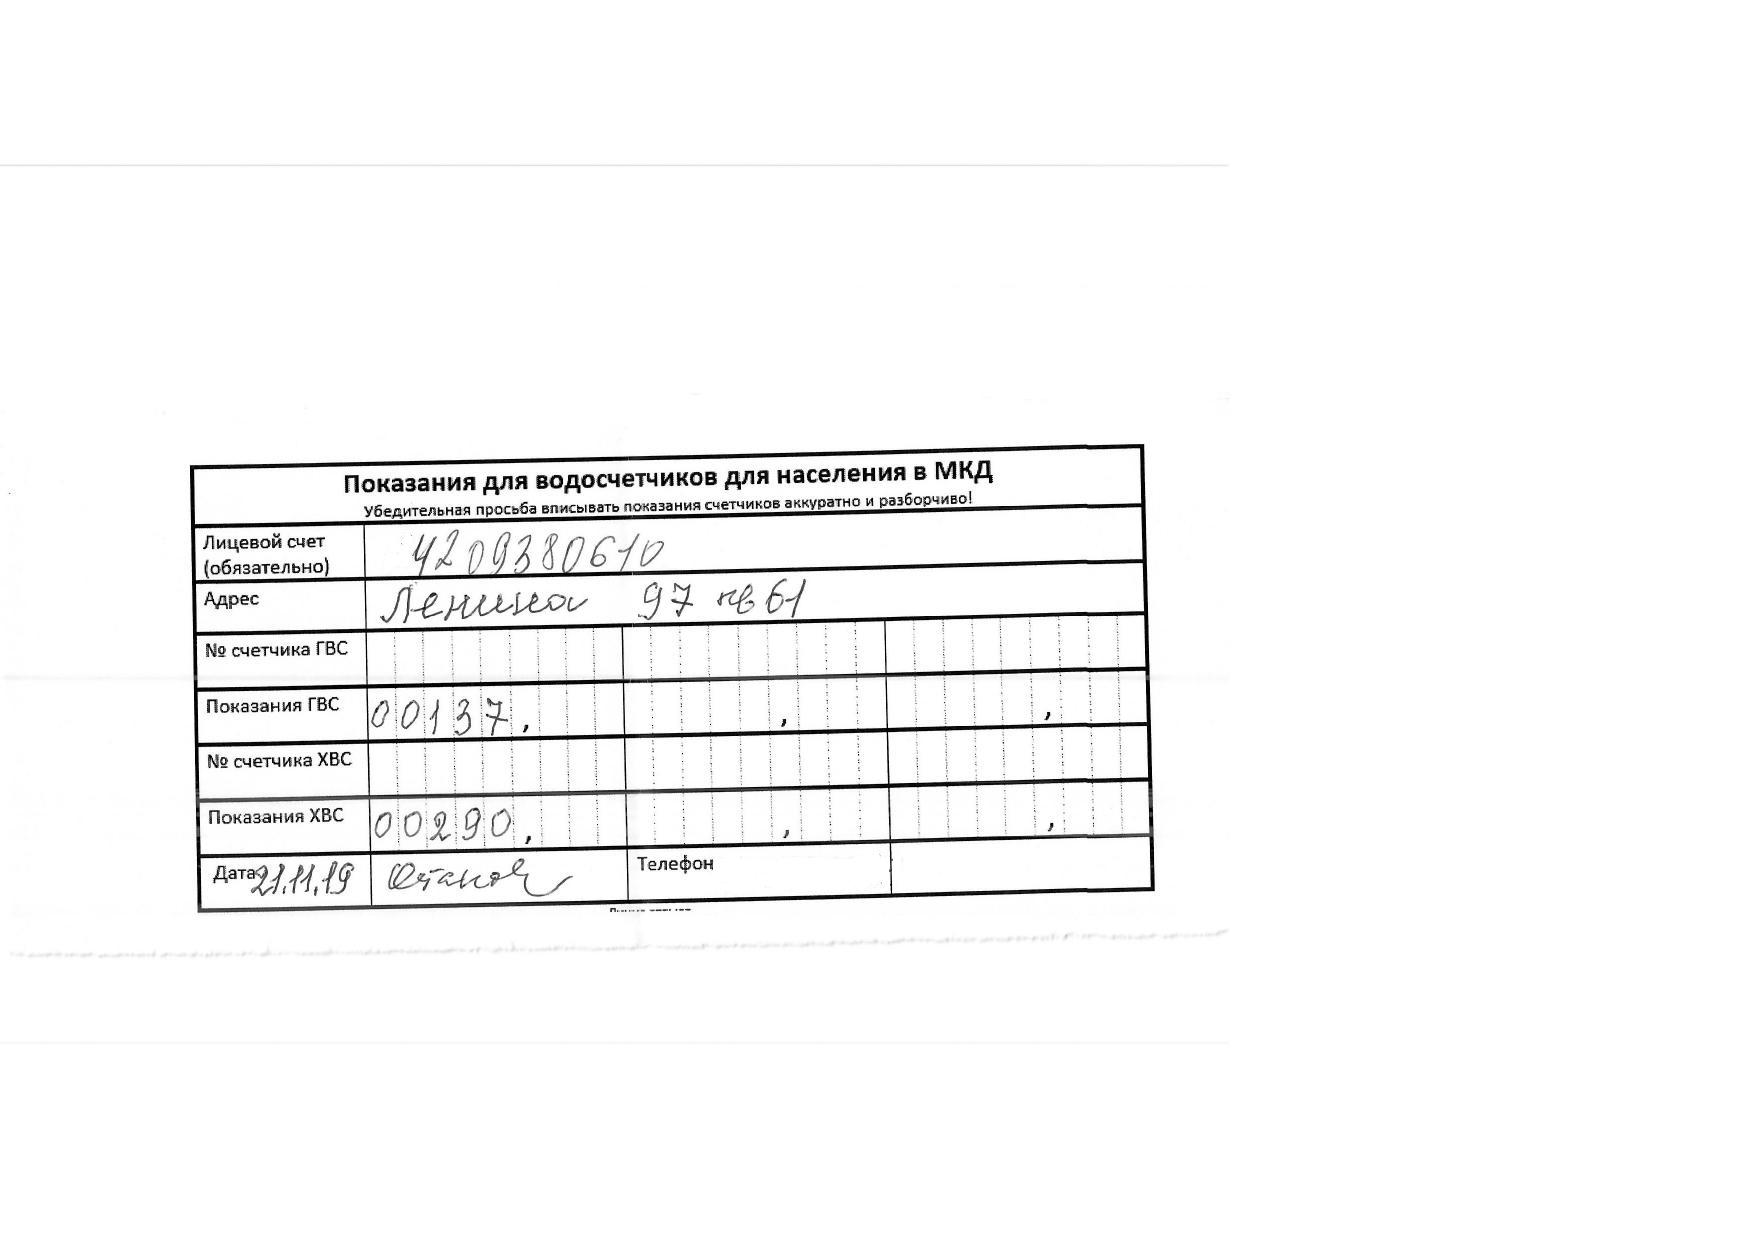 Показания для водосчетчиков для населения в МКД
Убедительная просьба вписывать показания счетчиков аккуратно и разборчиво!
Лицевой счет
(обязательно)
4209380610
Адрес
Ленина 97 кв 61
№ счетчика ГВС
Показания ГВС
00137, , ,
№ счетчика ХВС
Показания ХВС
00290, , ,
Дата 21.11.19
Телефон